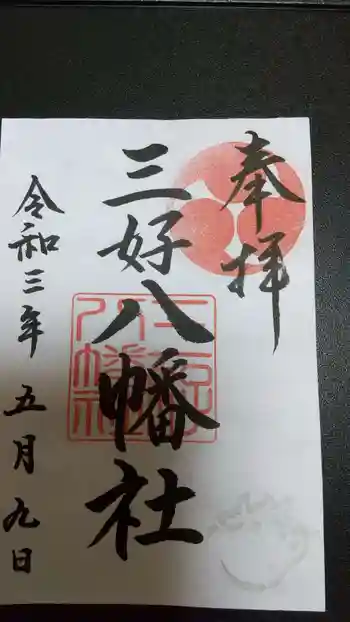 奉拝
三好八幡社
令和三年五月九日